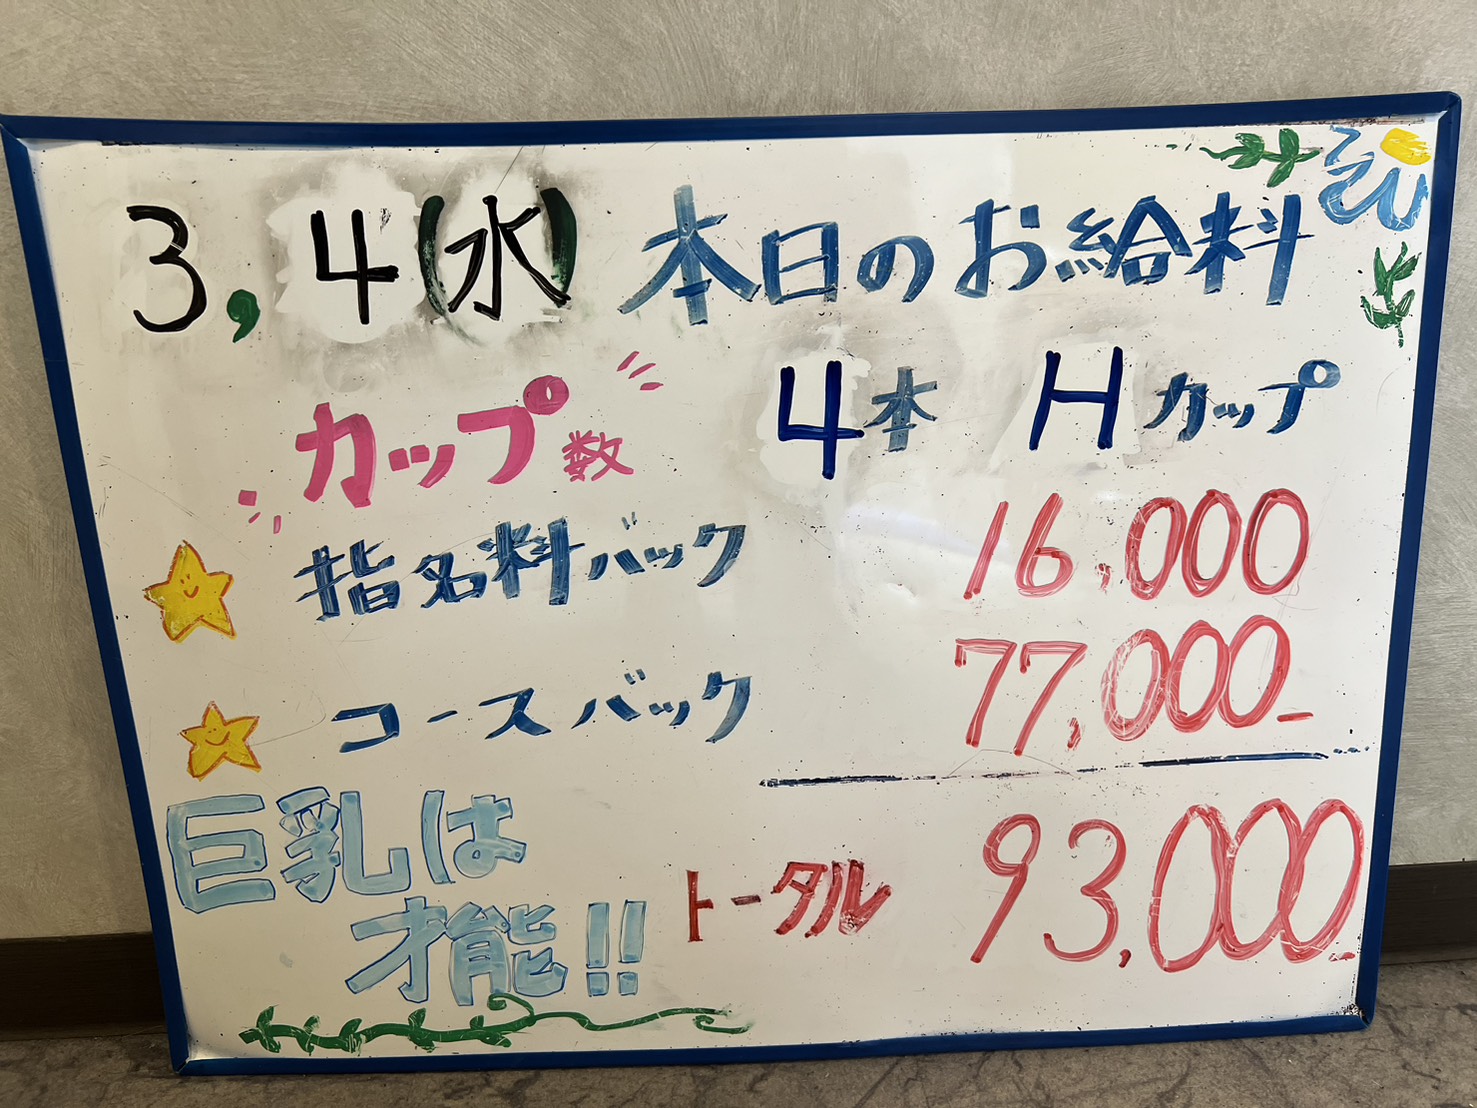 3,4(水) 本日のお給料
カップ数 4本 Hカップ
指名料バック 16,000
コースバック 77,000-
巨乳は
才能!!
トータル 93,000-